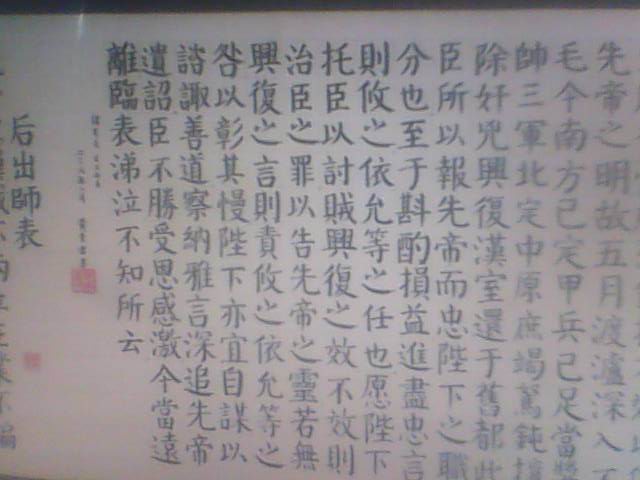 先帝之明故五月渡瀘深入不
毛今南方已定甲兵已足當獎
帥三軍北定中原庶竭駑鈍攘
除奸兇興復漢室還于舊都此
臣所以報先帝而忠陛下之職
分也至于斟酌損益進盡忠言
則攸之依允等之任也愿陛下
托臣以討賊興復之效不效則
治臣之罪以告先帝之靈若無
興復之言則責攸之依允等之
咎以彰其慢陛下亦宜自謀以
諮諏善道察納雅言深追先帝
遺詔臣不勝受恩感激今當遠
離臨表涕泣不知所云
后出師表